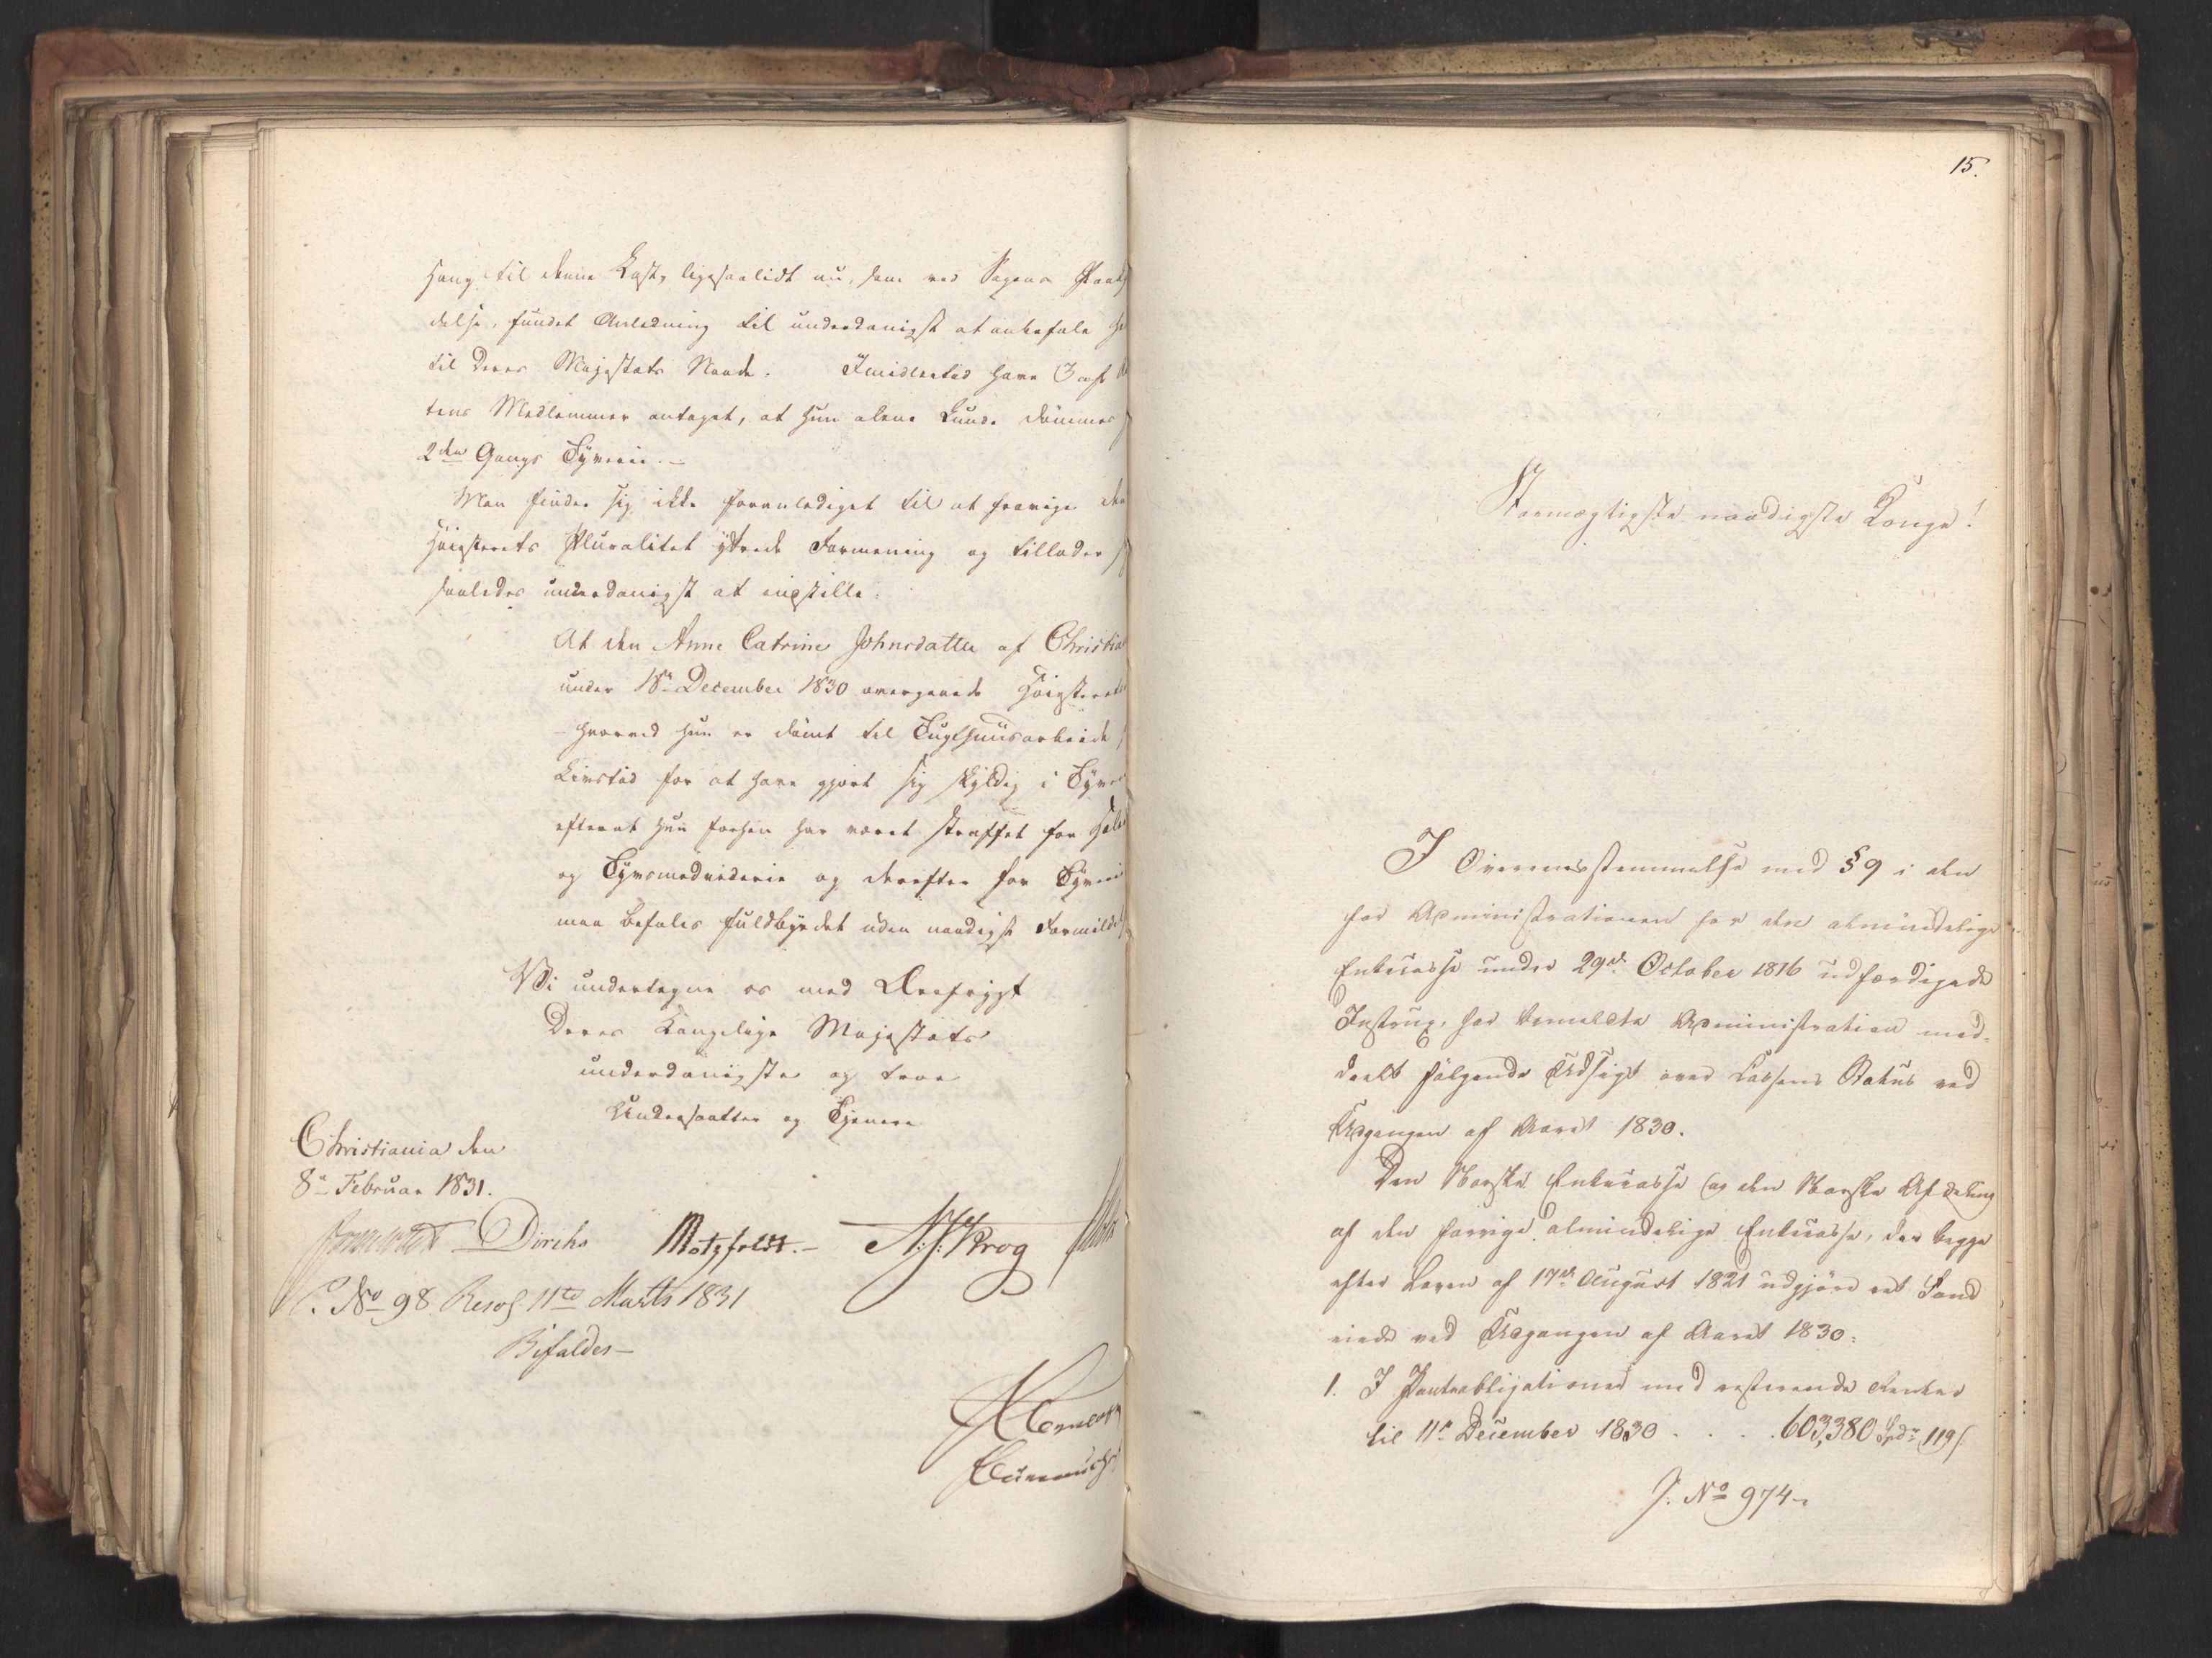 Hang til denne Last, ligesaalidt nu, som ved Sagens
delse, fundet Anledning til underdanigst at anbefale
til Deres Majestæts Naade. Imidlertid have 3 af
tens Medlemmer antaget, at hun alene kunde dømmes
2den Gangs Tyverie.-
Man finder sig ikke foranlediget til at fravige den
Høiesterets Pluralitet yttrede Formening og tillader
saaledes underdanigst at indstille:
At den Anne Catrine Johnsdatter af Christia
under 18de December 1830 overgaaede Høiesterets
- hvorved hun er dømt til Tugthuusarbeide
Livstid for at have gjort sig skyldig i Tyve
efterat hun forhen har været straffet for Hæle
og Tyvsmedviderie og derefter for Tyverie
maa befales fuldbyrdet uden naadigst Formild
Vi undertegne os med Ærefrygt
Deres Kongelige Majestæts
underdanigste og troe
Undersaatter og Tjenere
Christiania den
8de Februar 1831.
Diriks Motzfeldt.- N:J: Krog
P. No 98. Resol. 11te Marts 1831
Bifaldes-
15.
Stormægtigste naadigste Konge!
I Overeensstemmelse med § 9 i den
for Administrationen for den almindelige
Enkecasse under 29de October 1816 udfærdigede
Instrux, har bemeldte Administration med-
deelt følgende Udsigt over Cassens Status ved
Udgangen af Aaret 1830.
Den Norske Enkecasse og den Norske Afdeling
af den forrige almindelige Enkecasse, der begge
efter Loven af 17de August 1821 udgjøre eet Fond
eiede ved Udgangen af Aaret 1830:
1. I Pantobligationer med resterende Renter
til 11te December 1830 . . . . 603,380 Spdr 119 s.
J. No 974.